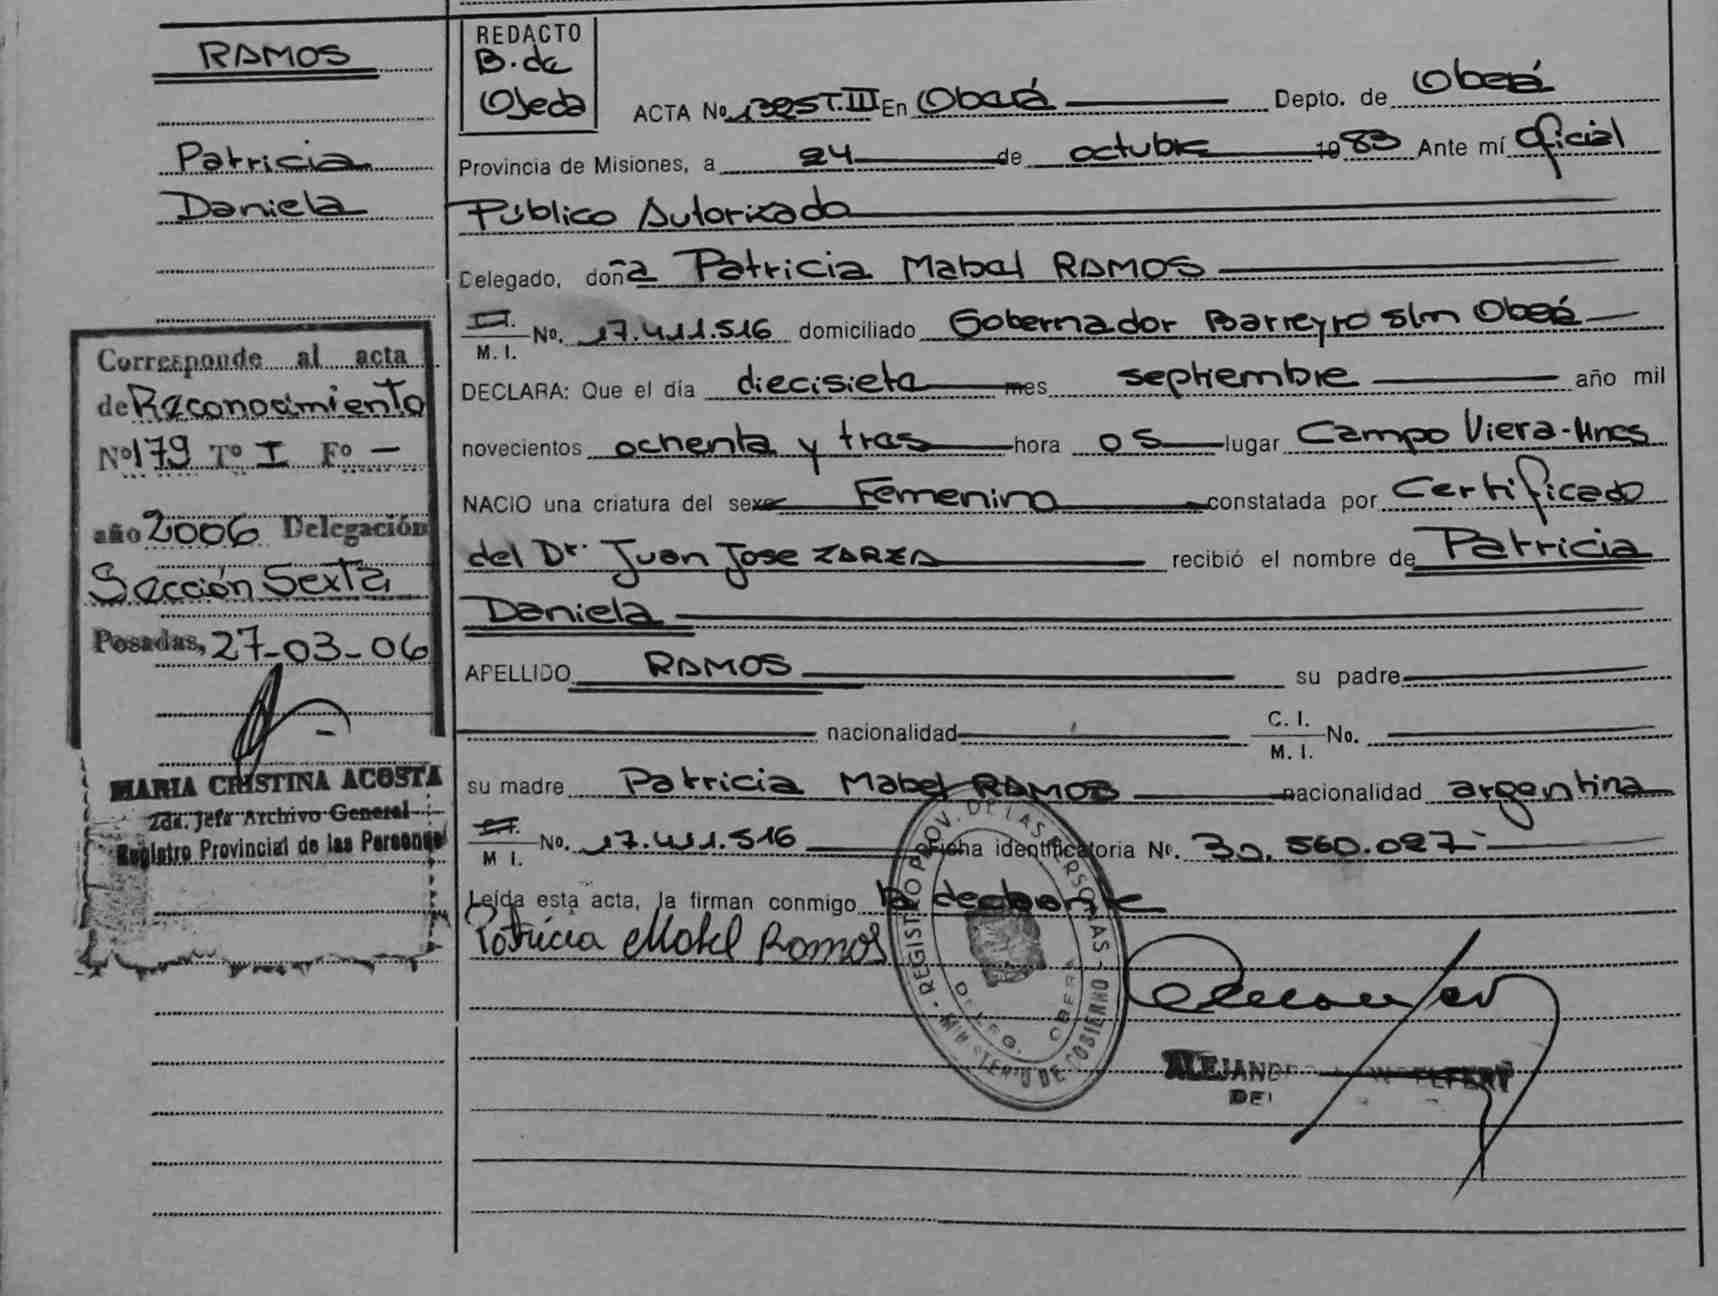 RAMOS
Patricia
Daniela
Corresponde al acta
de Reconocimiento
Nº 179 Tº I Fº -
año 2006 Delegación
Sección Sexta
Posadas, 27-03-06
MARIA CRISTINA ACOSTA
2da. Jefe Archivo General
Registro Provincial de las Personas
REDACTO
B. de
Ojeda
ACTA No T. III En Oberá Depto. de Oberá
Provincia de Misiones, a 24 de octubre 1983 Ante mí Oficial
Público Autorizado
Delegado, doña Patricia Mabel RAMOS
C.I. M. I. No. 17.411.516 domiciliado Gobernador Barreyro s/n Oberá
DECLARA: Que el día diecisiete mes septiembre año mil
novecientos ochenta y tres hora 05 lugar Campo Viera-Mnes
NACIO una criatura del sexo Femenino constatada por Certificado
del Dr. Juan Jose ZAREA recibió el nombre de Patricia
Daniela
APELLIDO RAMOS su padre
nacionalidad C. I. M. I. No.
su madre Patricia Mabel RAMOS nacionalidad argentina
C.I. M I. No. 17.411.516 Ficha identificatoria Nº. 30.560.027
Leída esta acta, la firman conmigo la declarante
Patricia Mabel Ramos
REGISTRO PROV. DE LAS PERSONAS - MINISTERIO DE GOBIERNO -
DELEG. OBERA